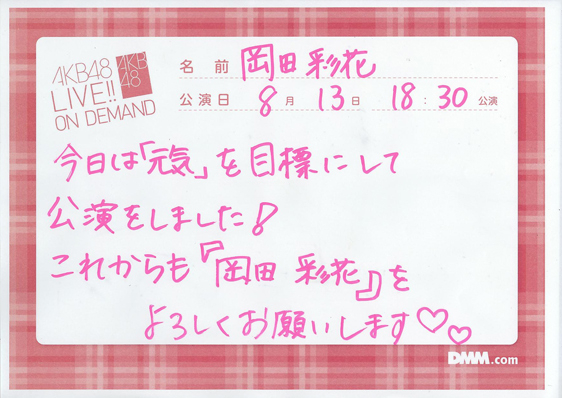 AKB48
LIVE!!
ON DEMAND
AKB
48
名 前 岡田彩花
公演日 8月 13日 18:30 公演
今日は「元気」を目標にして
公演をしました!
これからも『岡田 彩花』を
よろしくお願いします♡♡
DMM.com